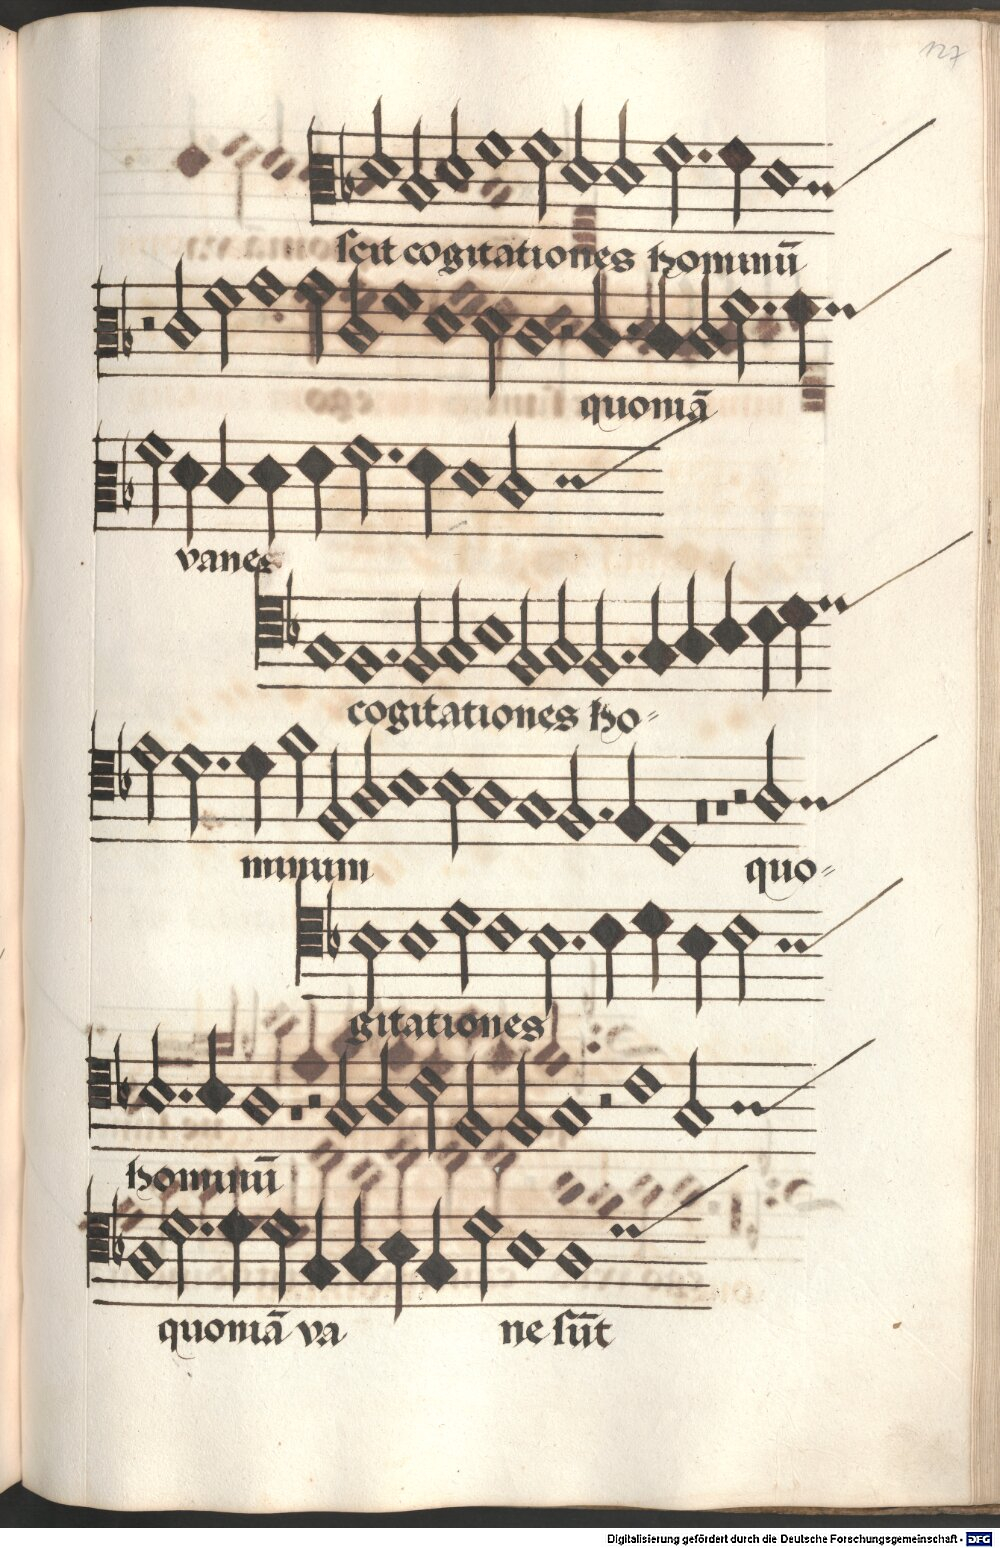 127
scit cogitationes hominū
quoniā
vanes
cogitationes ho⸗
minum quo⸗
gitationes
hominū
quoniā va ne sūt
Digitalisierung gefördert durch die Deutsche Forschungsgemeinschaft - DFG